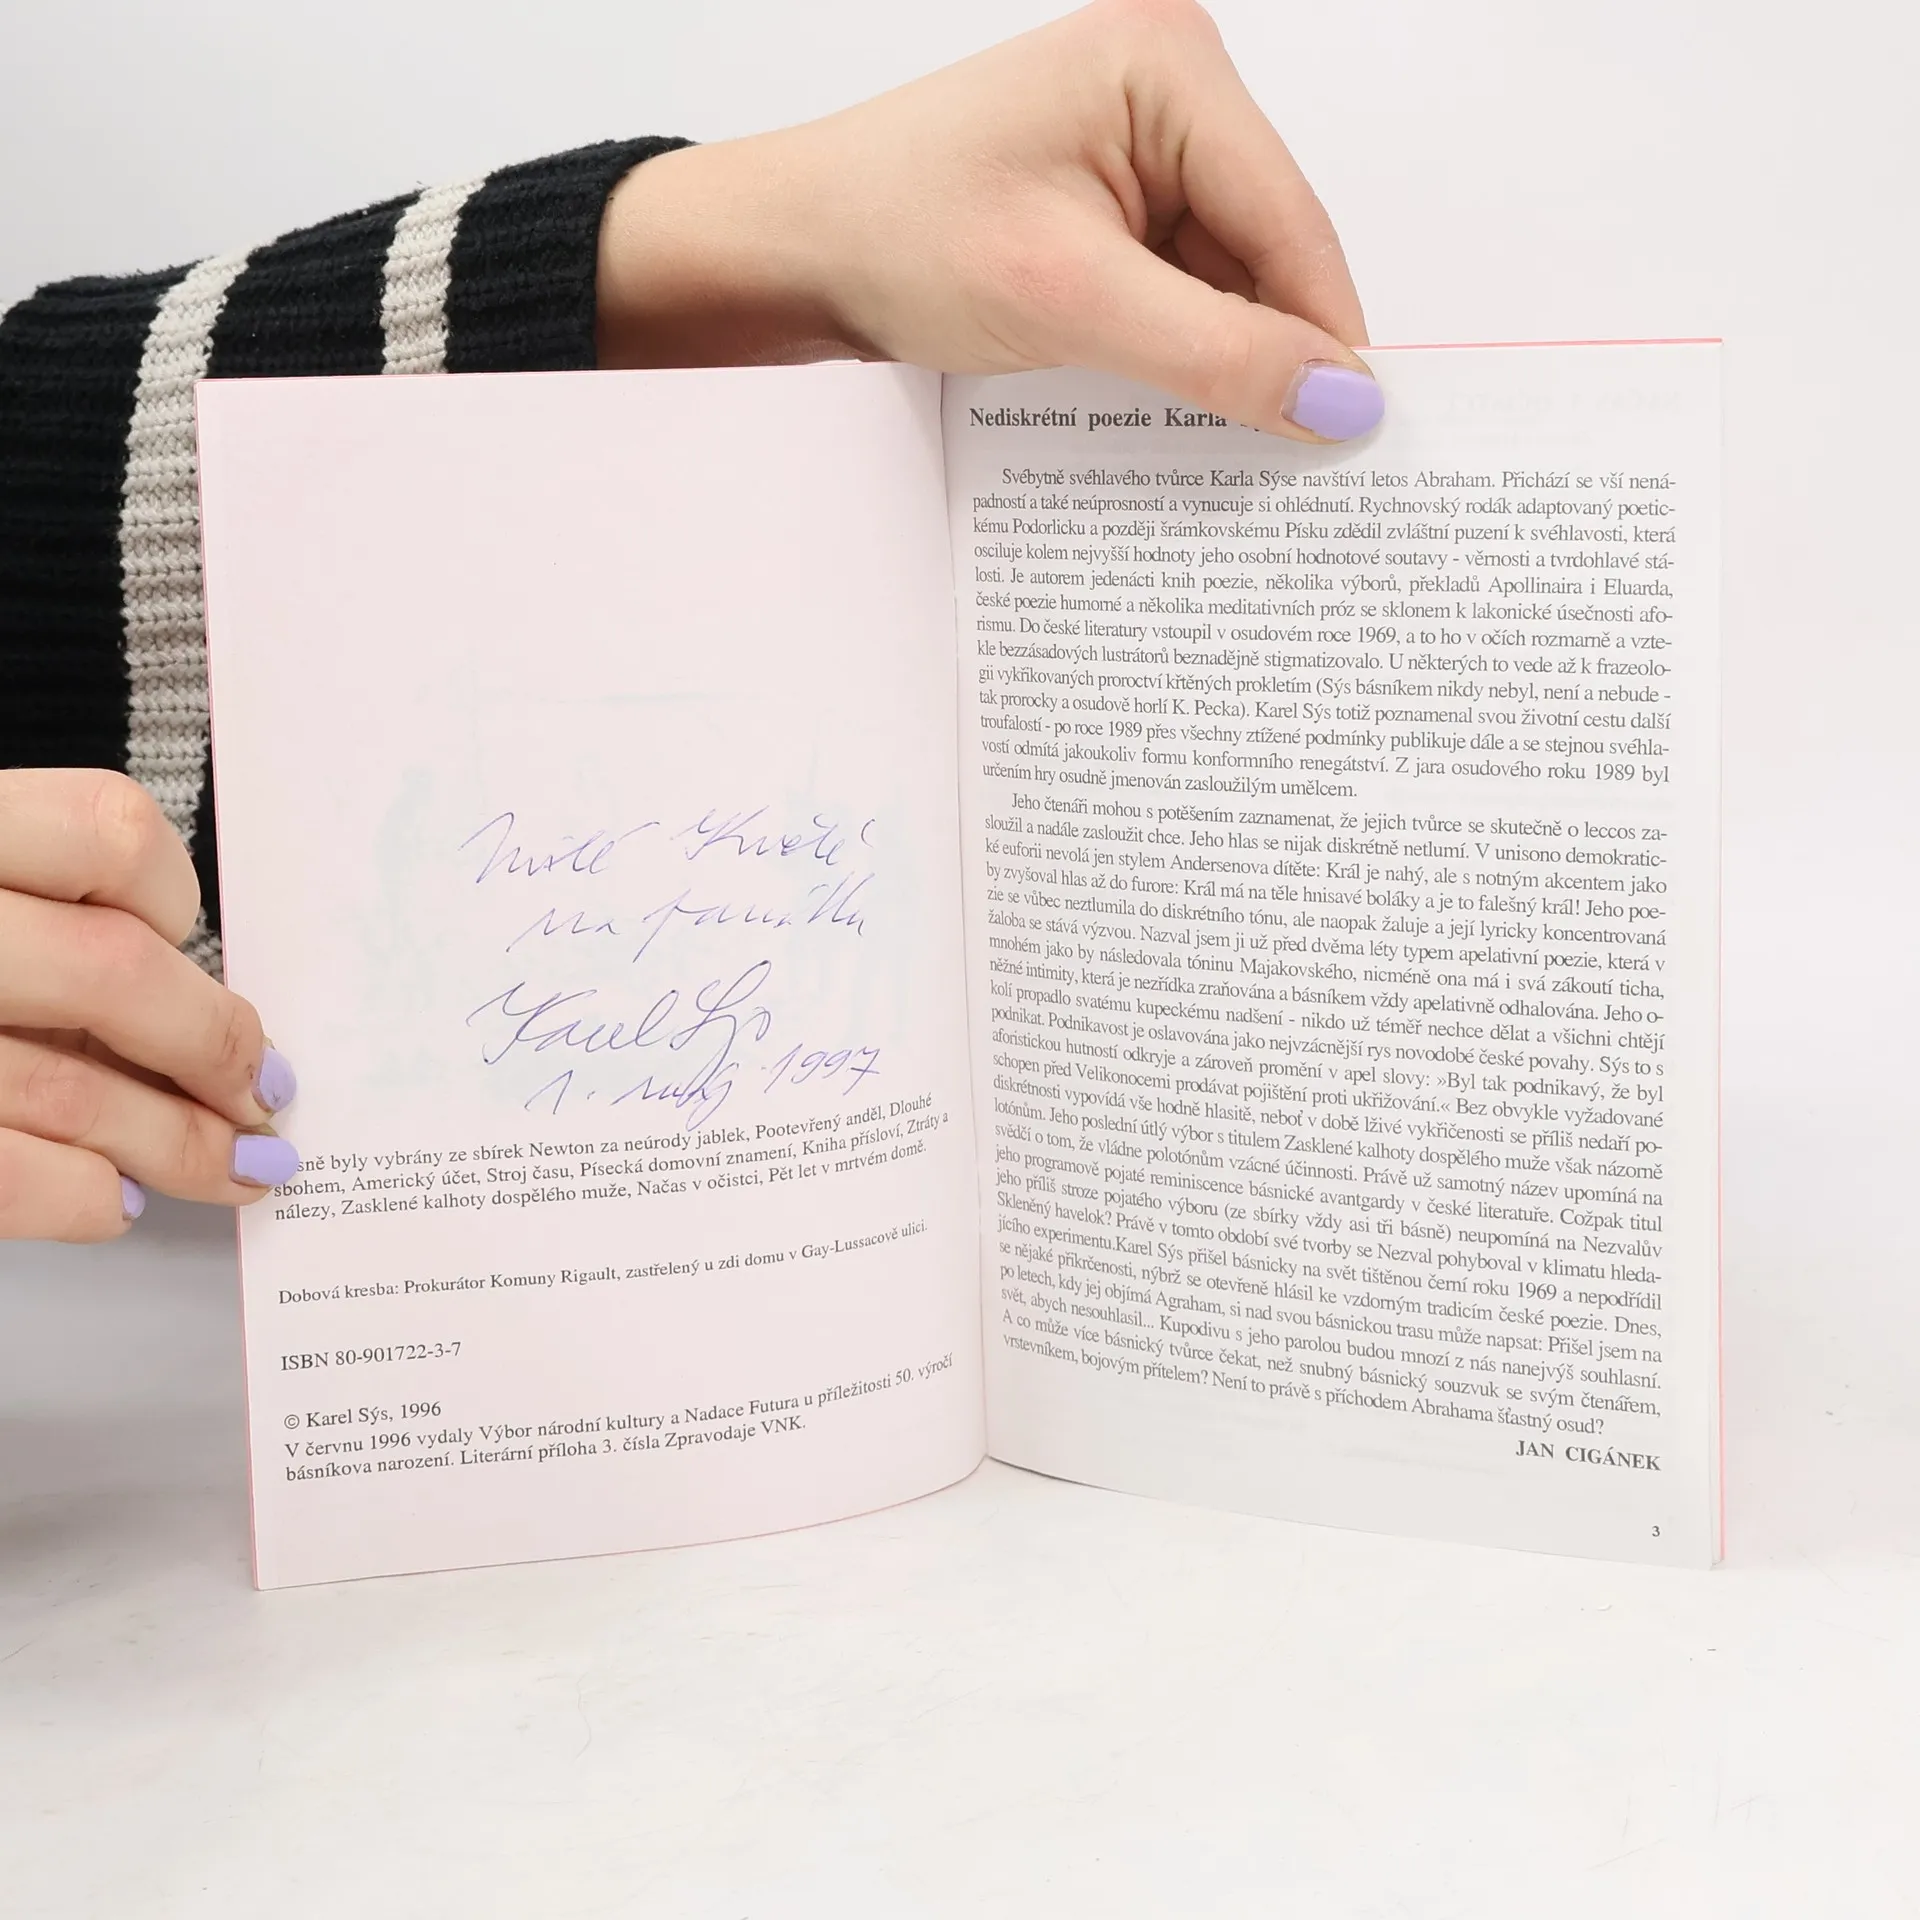 Milé Květě
na památku
Karel Sýs
1. máj 1997
sně byly vybrány ze sbírek Newton za neúrody jablek, Pootevřený anděl, Dlouhé
sbohem, Americký účet, Stroj času, Písecká domovní znamení, Kniha přísloví, Ztráty a
nálezy, Zasklené kalhoty dospělého muže, Načas v očistci, Pět let v mrtvém domě.
Dobová kresba: Prokurátor Komuny Rigault, zastřelený u zdi domu v Gay-Lussacově ulici.
ISBN 80-901722-3-7
© Karel Sýs, 1996
V červnu 1996 vydaly Výbor národní kultury a Nadace Futura u příležitosti 50. výročí
básníkova narození. Literární příloha 3. čísla Zpravodaje VNK.
Nediskrétní poezie Karla
Svébytně svéhlavého tvůrce Karla Sýse navštíví letos Abraham. Přichází se vší nená-
padností a také neúprosností a vynucuje si ohlédnutí. Rychnovský rodák adaptovaný poetic-
kému Podorlicku a později šrámkovskému Písku zdědil zvláštní puzení k svéhlavosti, která
osciluje kolem nejvyšší hodnoty jeho osobní hodnotové soutavy - věrnosti a tvrdohlavé stá-
losti. Je autorem jedenácti knih poezie, několika výborů, překladů Apollinaira i Eluarda,
české poezie humorné a několika meditativních próz se sklonem k lakonické úsečnosti afo-
rismu. Do české literatury vstoupil v osudovém roce 1969, a to ho v očích rozmarně a vzte-
kle bezzásadových lustrátorů beznadějně stigmatizovalo. U některých to vede až k frazeolo-
gii vykřikovaných proroctví křtěných prokletím (Sýs básníkem nikdy nebyl, není a nebude -
tak prorocky a osudově horlí K. Pecka). Karel Sýs totiž poznamenal svou životní cestu další
troufalostí - po roce 1989 přes všechny ztížené podmínky publikuje dále a se stejnou svéhla-
vostí odmítá jakoukoliv formu konformního renegátství. Z jara osudového roku 1989 byl
určením hry osudně jmenován zasloužilým umělcem.
Jeho čtenáři mohou s potěšením zaznamenat, že jejich tvůrce se skutečně o leccos za-
sloužil a nadále zasloužit chce. Jeho hlas se nijak diskrétně netlumí. V unisono demokratic-
ké euforii nevolá jen stylem Andersenova dítěte: Král je nahý, ale s notným akcentem jako
by zvyšoval hlas až do furore: Král má na těle hnisavé boláky a je to falešný král! Jeho poe-
zie se vůbec neztlumila do diskrétního tónu, ale naopak žaluje a její lyricky koncentrovaná
žaloba se stává výzvou. Nazval jsem ji už před dvěma léty typem apelativní poezie, která v
mnohém jako by následovala tóninu Majakovského, nicméně ona má i svá zákoutí ticha,
něžné intimity, která je nezřídka zraňována a básníkem vždy apelativně odhalována. Jeho o-
kolí propadlo svatému kupeckému nadšení - nikdo už téměř nechce dělat a všichni chtějí
podnikat. Podnikavost je oslavována jako nejvzácnější rys novodobé české povahy. Sýs to s
aforistickou hutností odkryje a zároveň promění v apel slovy: »Byl tak podnikavý, že byl
schopen před Velikonocemi prodávat pojištění proti ukřižování.« Bez obvykle vyžadované
diskrétnosti vypovídá vše hodně hlasitě, neboť v době lživé vykřičenosti se příliš nedaří po-
lotónům. Jeho poslední útlý výbor s titulem Zasklené kalhoty dospělého muže však názorně
svědčí o tom, že vládne polotónům vzácné účinnosti. Právě už samotný název upomíná na
jeho programově pojaté reminiscence básnické avantgardy v české literatuře. Cožpak titul
jeho příliš stroze pojatého výboru (ze sbírky vždy asi tři básně) neupomíná na Nezvalův
Skleněný havelok? Právě v tomto období své tvorby se Nezval pohyboval v klimatu hleda-
jícího experimentu.Karel Sýs přišel básnicky na svět tištěnou černí roku 1969 a nepodřídil
se nějaké přikrčenosti, nýbrž se otevřeně hlásil ke vzdorným tradicím české poezie. Dnes,
po letech, kdy jej objímá Agraham, si nad svou básnickou trasu může napsat: Přišel jsem na
svět, abych nesouhlasil... Kupodivu s jeho parolou budou mnozí z nás nanejvýš souhlasní.
A co může více básnický tvůrce čekat, než snubný básnický souzvuk se svým čtenářem,
vrstevníkem, bojovým přítelem? Není to právě s příchodem Abrahama šťastný osud?
JAN CIGÁNEK
3